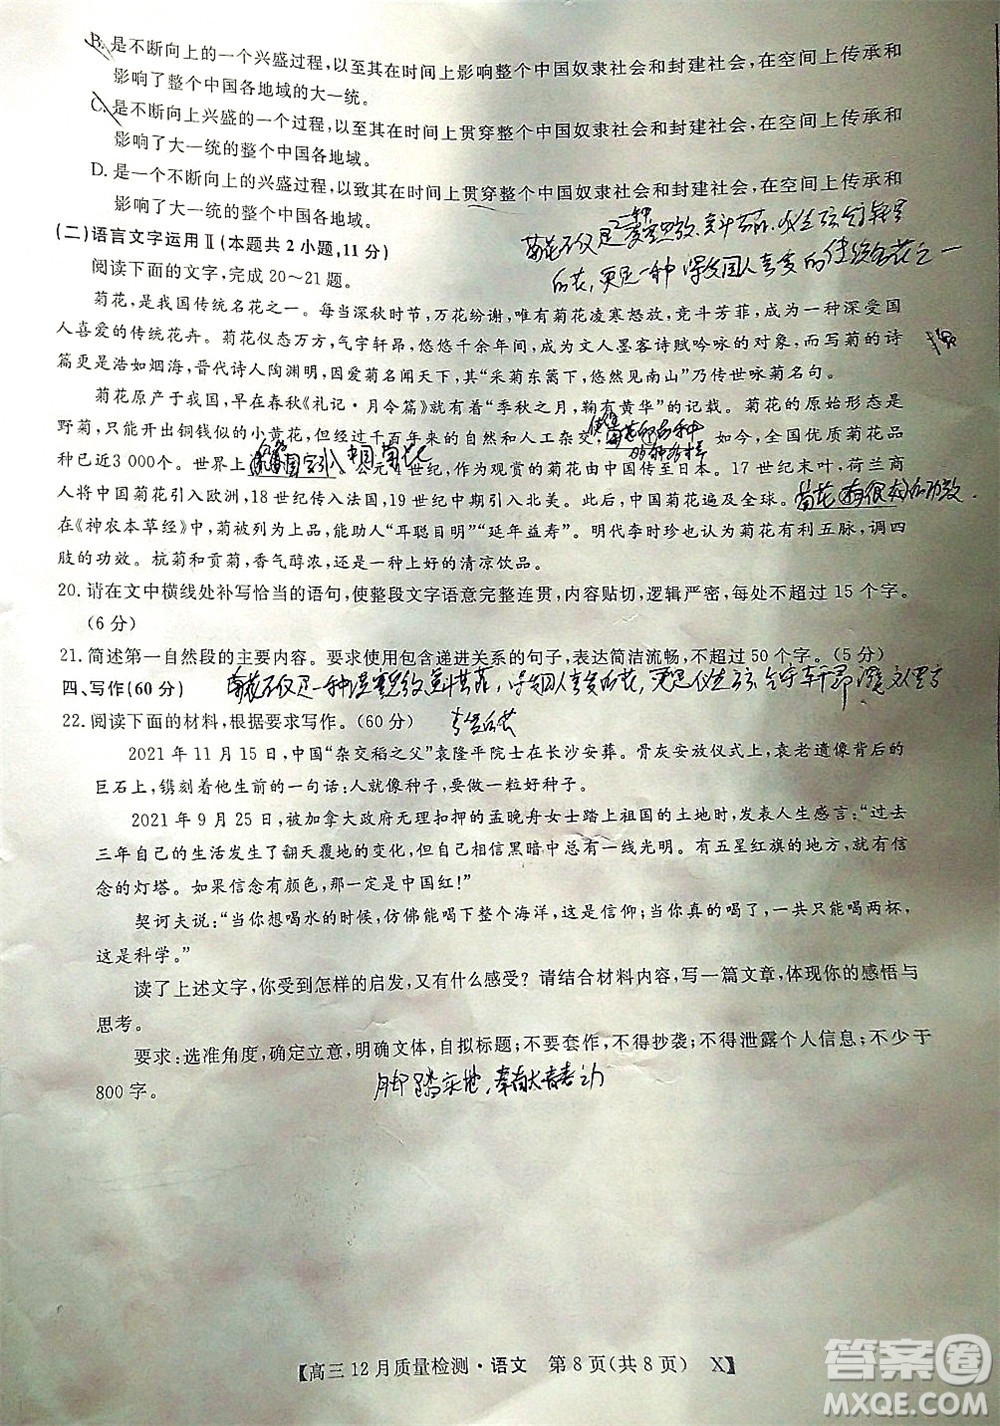 B. 是不断向上的一个兴盛过程,以至其在时间上影响整个中国奴隶社会和封建社会,在空间上传承和
影响了整个中国各地域的大一统。
C. 是不断向上兴盛的一个过程,以至其在时间上贯穿整个中国奴隶社会和封建社会,在空间上传承和
影响了大一统的整个中国各地域。
D. 是一个不断向上的兴盛过程,以致其在时间上贯穿整个中国奴隶社会和封建社会,在空间上传承和
影响了大一统的整个中国各地域。
(二)语言文字运用Ⅱ(本题共2小题,11分)
阅读下面的文字,完成20~21题。
菊花,是我国传统名花之一。每当深秋时节,万花纷谢,唯有菊花凌寒怒放,竞斗芳菲,成为一种深受国
人喜爱的传统花卉。菊花仪态万方,气宇轩昂,悠悠千余年间,成为文人墨客诗赋吟咏的对象,而写菊的诗
篇更是浩如烟海,晋代诗人陶渊明,因爱菊名闻天下,其“采菊东篱下,悠然见南山”乃传世咏菊名句。
菊花原产于我国,早在春秋《礼记·月令篇》就有“季秋之月,鞠有黄华”的记载。菊花的原始形态是
野菊,只能开出铜钱似的小黄花,但经过千百年来的自然和人工杂交, 如今,全国优质菊花品
种已近3 000个。世界上 引入中国菊花 公元 世纪,作为观赏的菊花由中国传至日本。17世纪末叶,荷兰商
人将中国菊花引入欧洲,18世纪传入法国,19世纪中期引入北美。此后,中国菊花遍及全球。菊花
在《神农本草经》中,菊被列为上品,能助人“耳聪目明”“延年益寿”。明代李时珍也认为菊花有利五脉,调四
肢的功效。杭菊和贡菊,香气醇浓,还是一种上好的清凉饮品。
20. 请在文中横线处补写恰当的语句,使整段文字语意完整连贯,内容贴切,逻辑严密,每处不超过15个字。
(6分)
21. 简述第一自然段的主要内容。要求使用包含递进关系的句子,表达简洁流畅,不超过50个字。(5分)
四、写作(60分)
22. 阅读下面的材料,根据要求写作。(60分)
2021年11月15日,中国“杂交稻之父”袁隆平院士在长沙安葬。骨灰安放仪式上,袁老遗像背后的
巨石上,镌刻着他生前的一句话:人就像种子,要做一粒好种子。
2021年9月25日,被加拿大政府无理扣押的孟晚舟女士踏上祖国的土地时,发表人生感言:“过去
三年自己的生活发生了翻天覆地的变化,但更相信黑暗中有一线光明。有五星红旗的地方,就有信
念的灯塔。如果信念有颜色,那一定是中国红!”
契诃夫说:“当你想喝水的时候,仿佛能喝下整个海洋,这是信仰;当你真的喝了,一共只能喝两杯,
这是科学。”
读了上述文字,你受到怎样的启发,又有什么感受?请结合材料内容,写一篇文章,体现你的感悟与
思考。
要求:选准角度,确定立意,明确文体,自拟标题;不要套作,不得抄袭;不得泄露个人信息;不少于
800字。
脚踏实地,奉献青春之力
【高三12月质量检测·语文 第8页(共8页) X】
答案圈
MXQE.COM